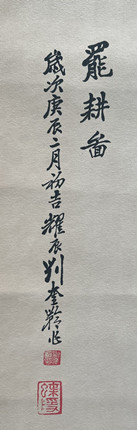 罷耕圖
歲次庚辰二月初吉耀辰劉奎齡作